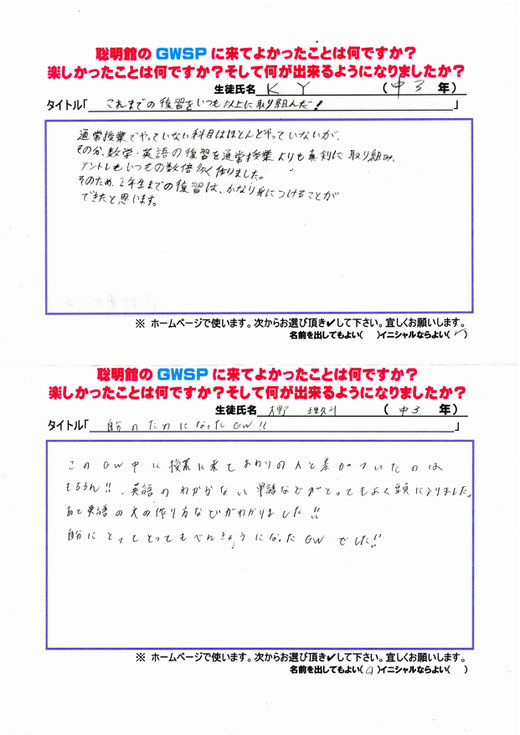 聡明館のGWSPに来てよかったことは何ですか？
楽しかったことは何ですか？そして何が出来るようになりましたか？
生徒氏名 K Y （中3年）
タイトル「これまでの復習をいつも以上に取り組んだ！」
通常授業でやっていない科目はほとんどやっていないが、
その分、数学・英語の復習を通常授業よりも真剣に取り組み、
アントレもいつもの数倍多く作りました。
そのため、2年生までの復習は、かなり身につけることが
できたと思います。
※ ホームページで使います。次からお選び頂き✔して下さい。宜しくお願いします。
名前を出してもよい（ ）イニシャルならよい（✓）
聡明館のGWSPに来てよかったことは何ですか？
楽しかったことは何ですか？そして何が出来るようになりましたか？
生徒氏名 （中3年）
タイトル「自分のためになったGW!!」
このGW中に授業に来てまわりの人と差がついたのは
もちろん!!、英語のわからない単語などがとってもよく頭に入りました。
あと英語の文の作り方などがわかりました!!
自分にとってとってもべんきょうになったGWでした!!
※ ホームページで使います。次からお選び頂き✔して下さい。宜しくお願いします。
名前を出してもよい（ ）イニシャルならよい（ ）